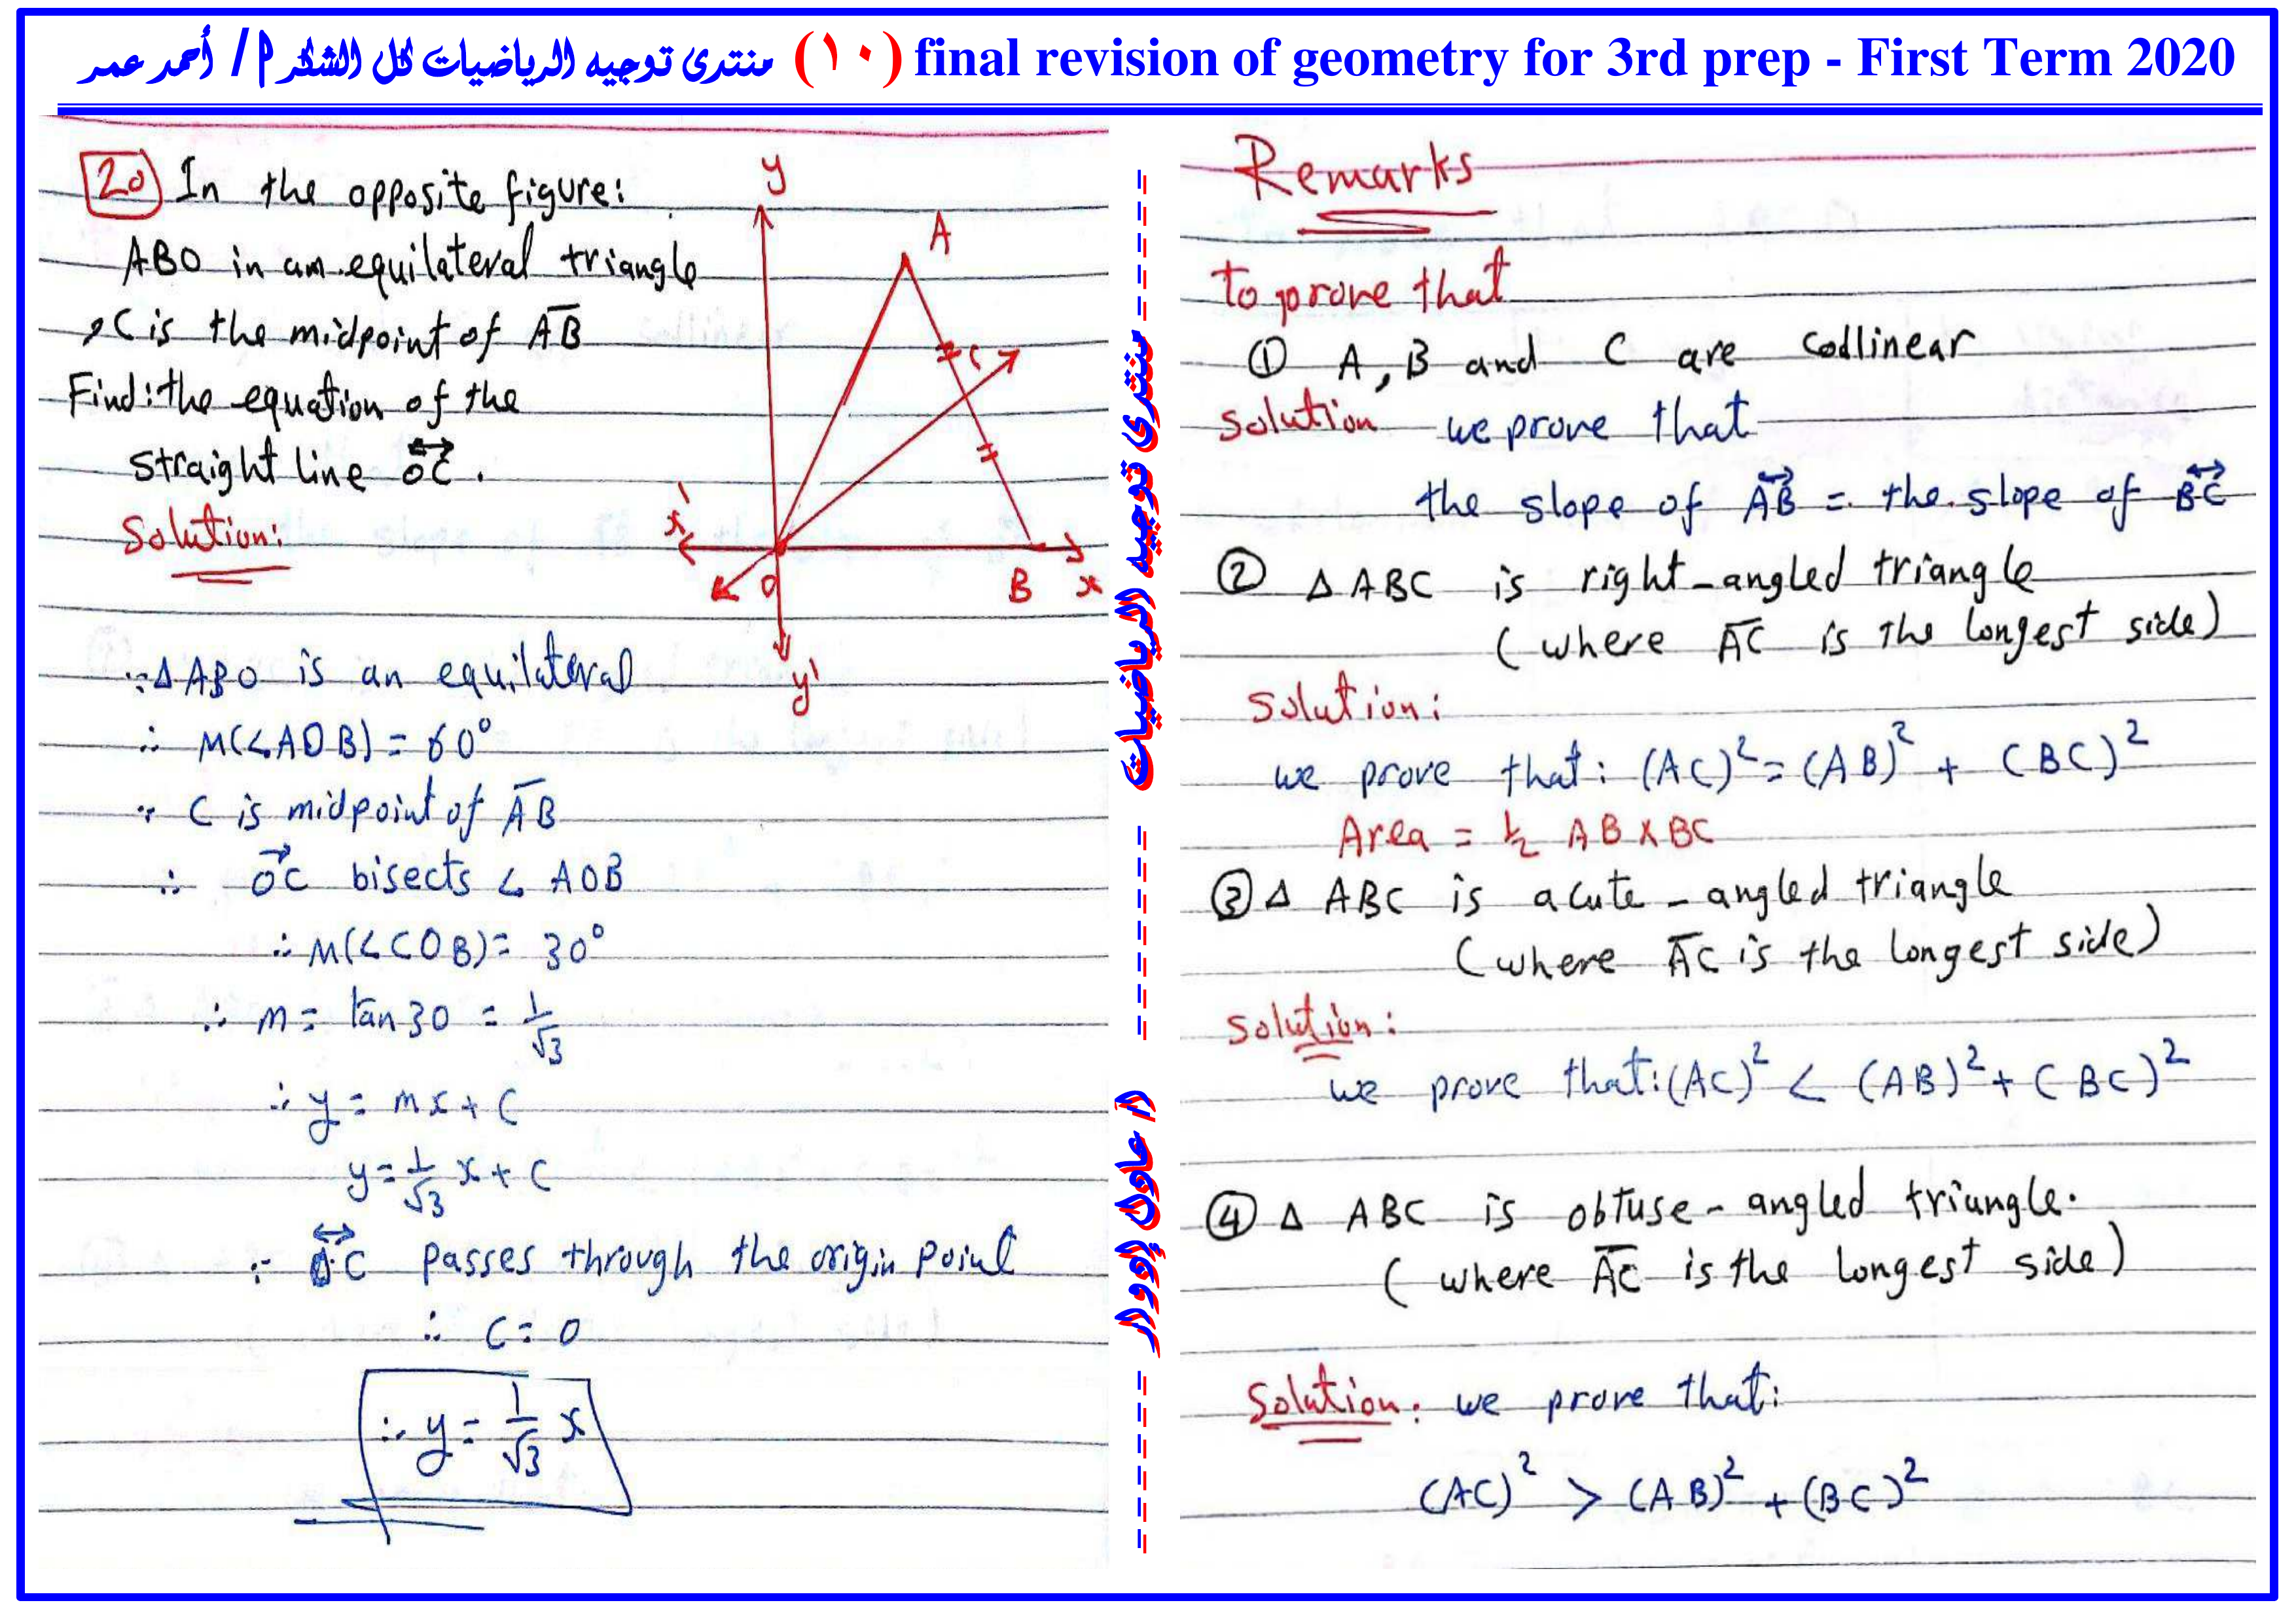 منتدى توجيه الرياضيات كل الشكر أ/ أحمر عمر (١٠) final revision of geometry for 3rd prep - First Term 2020
20 In the opposite figure:
ABO in am equilateral triangle
, C is the midpoint of A̅B̅
Find: the equation of the
straight line OC.
Solution:
y
A
C
x'
O
B
x
y'
∵ Δ ABO is an equilateral
∴ M(∠AOB) = 60°
∵ C is midpoint of A̅B̅
∴ OC bisects ∠ AOB
∴ M(∠COB) = 30°
∴ m = tan 30 = 1/√3
∴ y = mx + C
y = 1/√3 x + C
∵ OC passes through the origin point
∴ C = 0
∴ y = 1/√3 x
منتدى توجيه الرياضيات
أ/ عادل إدوار
Remarks
to prove that
① A, B and C are codlinear
solution we prove that
the slope of AB = the slope of BC
② Δ ABC is right-angled triangle
(where A̅C̅ is the longest side)
Solution:
we prove that: (AC)² = (AB)² + (BC)²
Area = ½ AB × BC
③ Δ ABC is acute - angled triangle
(where A̅C̅ is the longest side)
Solution:
we prove that: (AC)² < (AB)² + (BC)²
④ Δ ABC is obtuse - angled triangle.
(where A̅C̅ is the longest side)
Solution: we prove that:
(AC)² > (AB)² + (BC)²